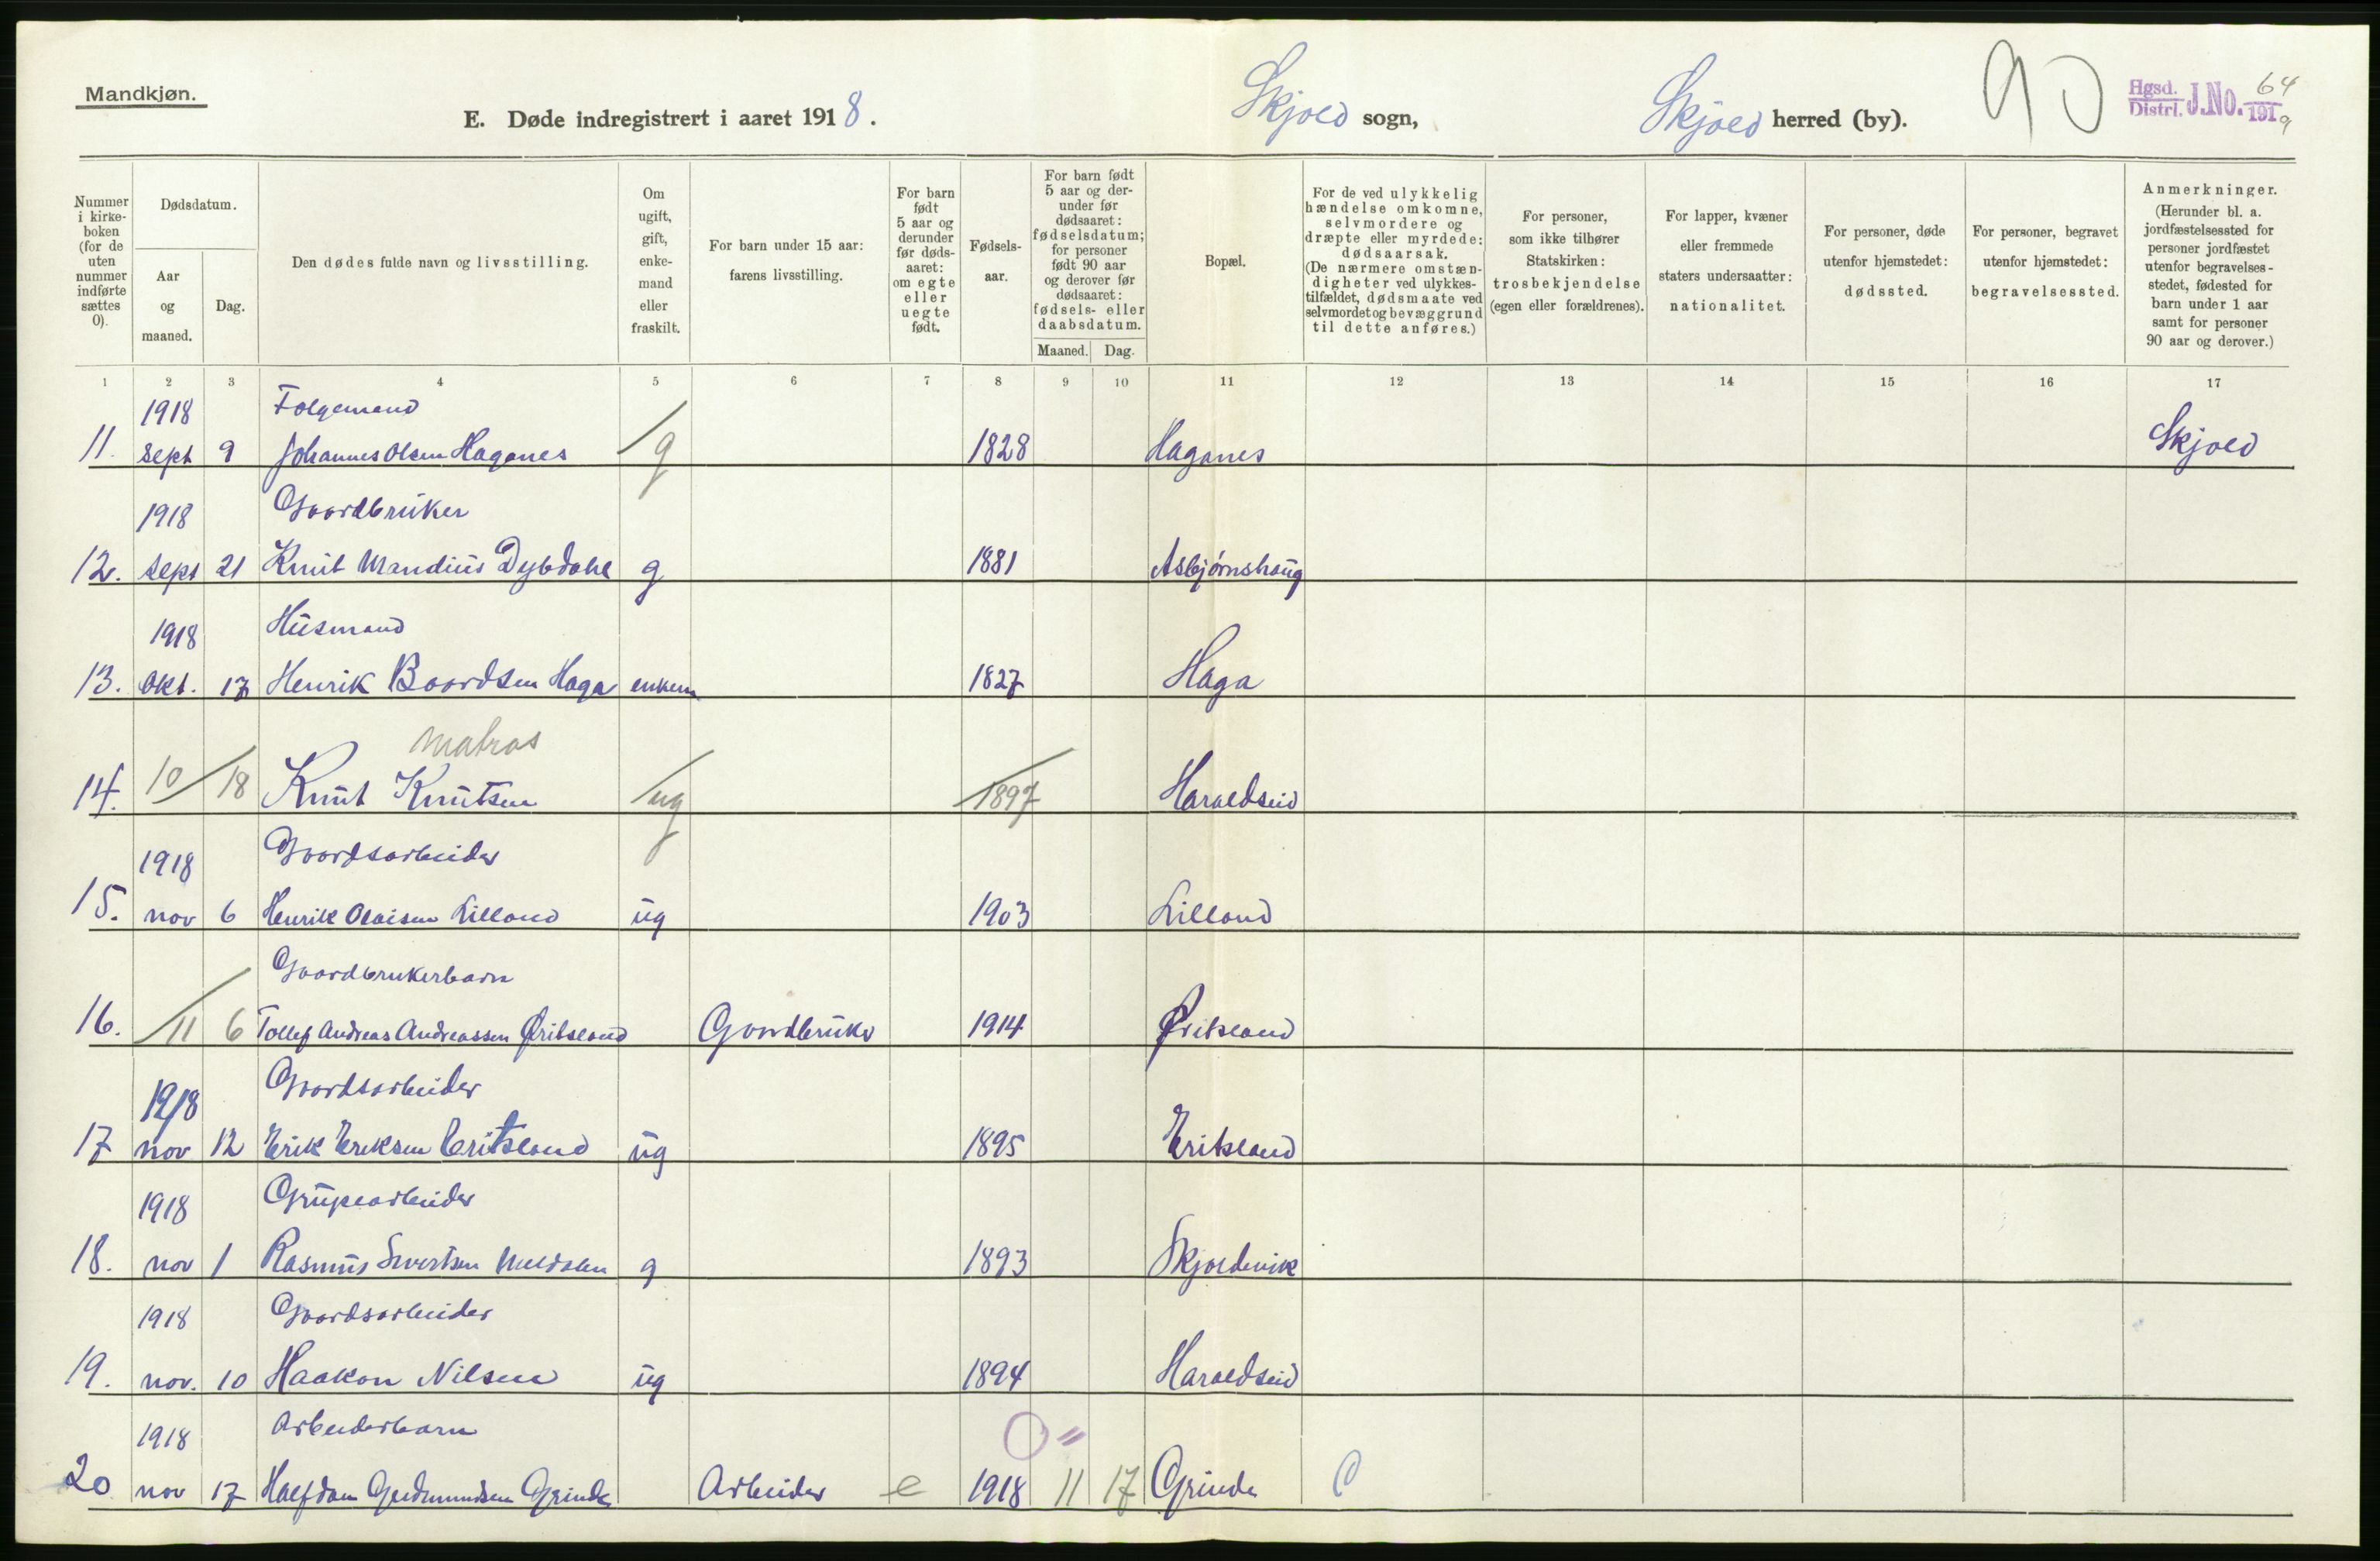 Mandkjøn.
E. Døde indregistrert i aaret 1918.
Skjold sogn,
Skjold herred (by).
90
Hgsd. Distrl. J.No. 64/1919
Nummer i kirkeboken (for de uten nummer indførte sættes 0).
Dødsdatum.
Aar og maaned.
Dag.
Den dødes fulde navn og livsstilling.
Om ugift, gift, enkemand eller fraskilt.
For barn under 15 aar: farens livsstilling.
For barn født 5 aar og derunder før dødsaaret: om egte eller uegte født.
Fødselsaar.
For barn født 5 aar og derunder før dødsaaret: fødselsdatum; for personer født 90 aar og derover før dødsaaret: fødsels- eller daabsdatum.
Maaned. Dag.
Bopæl.
For de ved ulykkelig hændelse omkomne, selvmordere og dræpte eller myrdede: dødsaarsak. (De nærmere omstændigheter ved ulykkestilfældet, dødsmaate ved selvmordet og bevæggrund til dette anføres.)
For personer, som ikke tilhører Statskirken: trosbekjendelse (egen eller forældrenes).
For lapper, kvæner eller fremmede staters undersaatter: nationalitet.
For personer, døde utenfor hjemstedet: dødssted.
For personer, begravet utenfor hjemstedet: begravelsessted.
Anmerkninger. (Herunder bl. a. jordfæstelsessted for personer jordfæstet utenfor begravelsesstedet, fødested for barn under 1 aar samt for personer 90 aar og derover.)
1 2 3 4 5 6 7 8 9 10 11 12 13 14 15 16 17
1918 Folgemand
11. Sept 9 Johannes Olsen Haganes g 1828 Haganes Skjold
1918 Gaardbruker
12. Sept 21 Knut Mandius Dybdahl g 1881 Asbjørnshaug
1918 Husmand
13. Okt. 17 Henrik Baardsen Haga enkem 1827 Haga
matros
14. 10/18 Knut Knutsen ug 1897 Haraldseid
1918 Gaardsarbeider
15. nov 6 Henrik Olaisen Lilland ug 1903 Lilland
Gaardbrukerbarn
16. 11 6 Tollef Andreas Andreassen Øritsland Gaardbruker 1914 Øritsland
1918 Gaardsarbeider
17 nov 12 Erik Eriksen Eritsland ug 1895 Eritsland
1918 Grubearbeider
18. nov 1 Rasmus Sivertsen g 1893 Skjoldevik
1918 Gaardsarbeider
19. nov. 10 Haakon Nilsen ug 1894 Haraldseid
1918 Arbeiderbarn 0 "
20 nov 17 Halfdan Gudmundsen Grinde Arbeider e 1918 11 17 Grinde